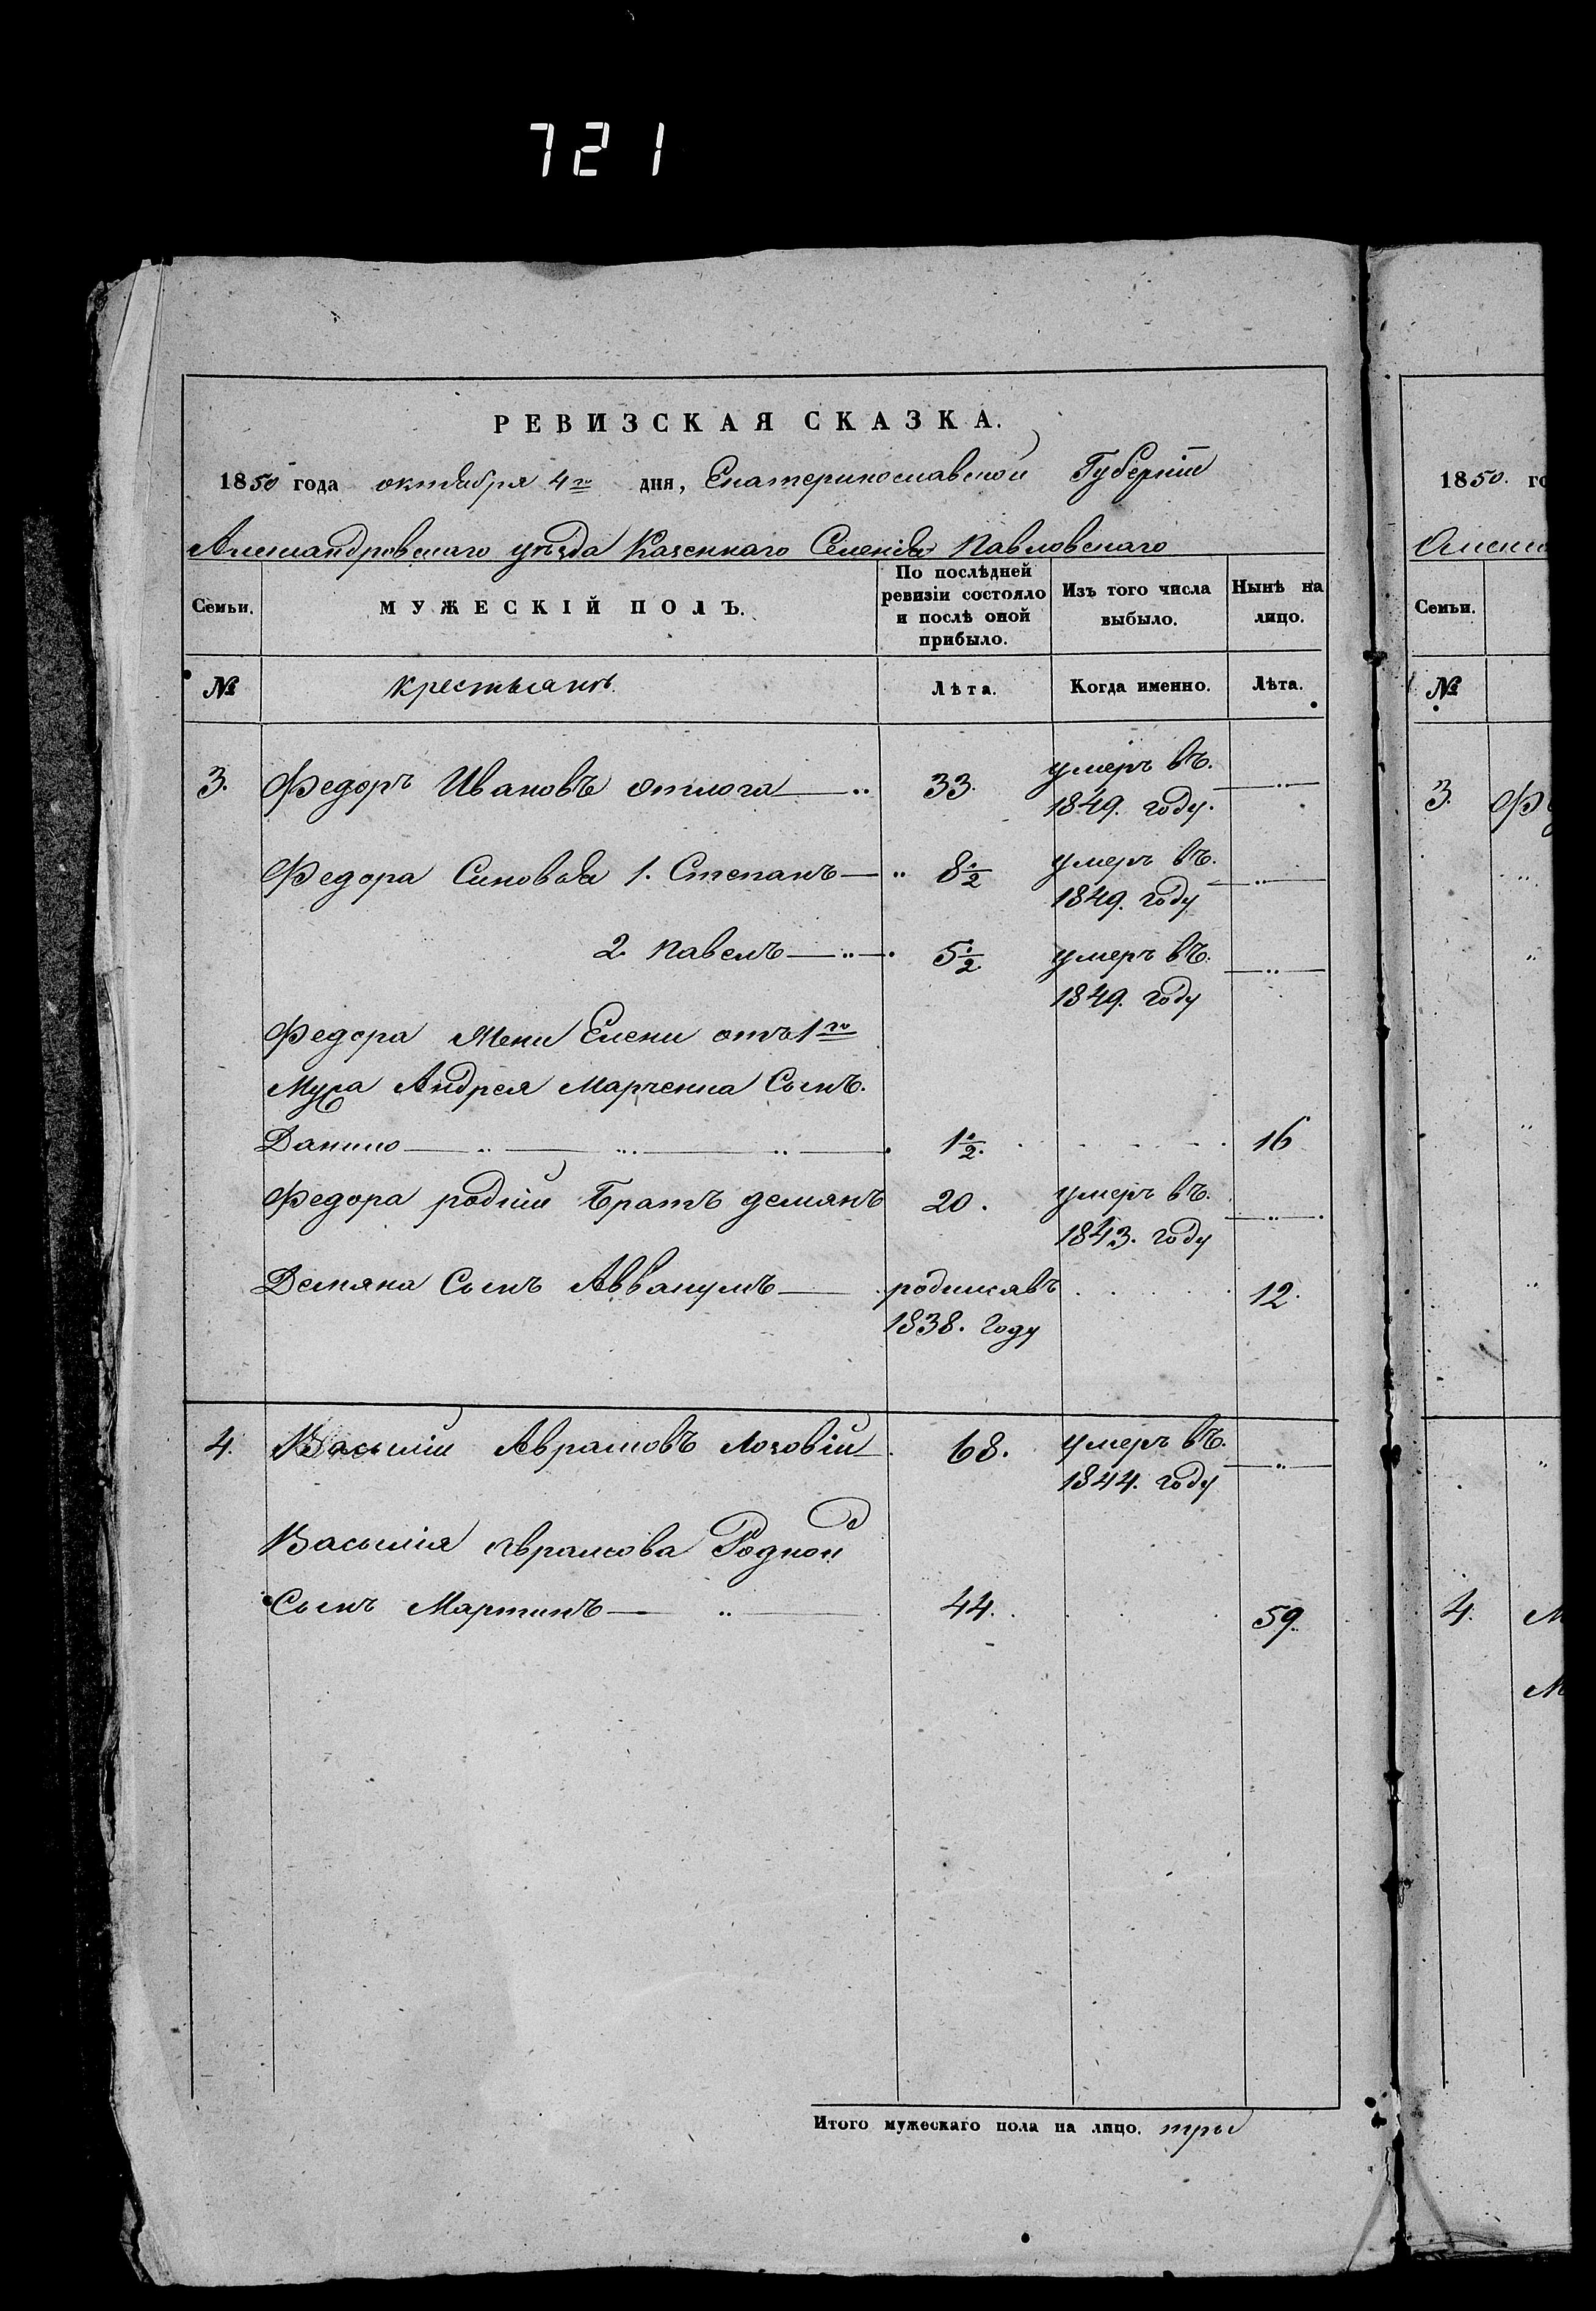 721
РЕВИЗСКАЯ СКАЗКА.
1850 года октября 4го дня, Екатеринославской Губерніи
Александровскаго уѣзда Казеннаго Селенія Павловскаго
Семьи. МУЖЕСКІЙ ПОЛЪ. По послѣдней ревизіи состояло и послѣ оной прибыло. Изъ того числа выбыло. Нынѣ на лицо.
№ крестьянъ Лѣта. Когда именно. Лѣта.
3. Федоръ Ивановъ 33. умеръ въ
1849. году.
Федора Синовья 1. Степанъ 8½ умеръ въ
1849. году
2 Павелъ 5½ умеръ въ
1849. году
Федора Жени Елени отъ 1го
Мужа Андрея Марченка Сынъ.
Данило 1½. 16
Федора родній Братъ Демянъ 20. умеръ въ
1843. году
Демяна Сынъ Аввакумъ родился въ 12.
1838. Году
4. Василій Аврамовъ Лозовій 68. умеръ въ
1844. году
Василія Аврамова Родной
Сынъ Мартинъ 44. 59.
Итого мужескаго пола на лицо. три
1850. го
Семьи.
№
3. Фе
4. М
М